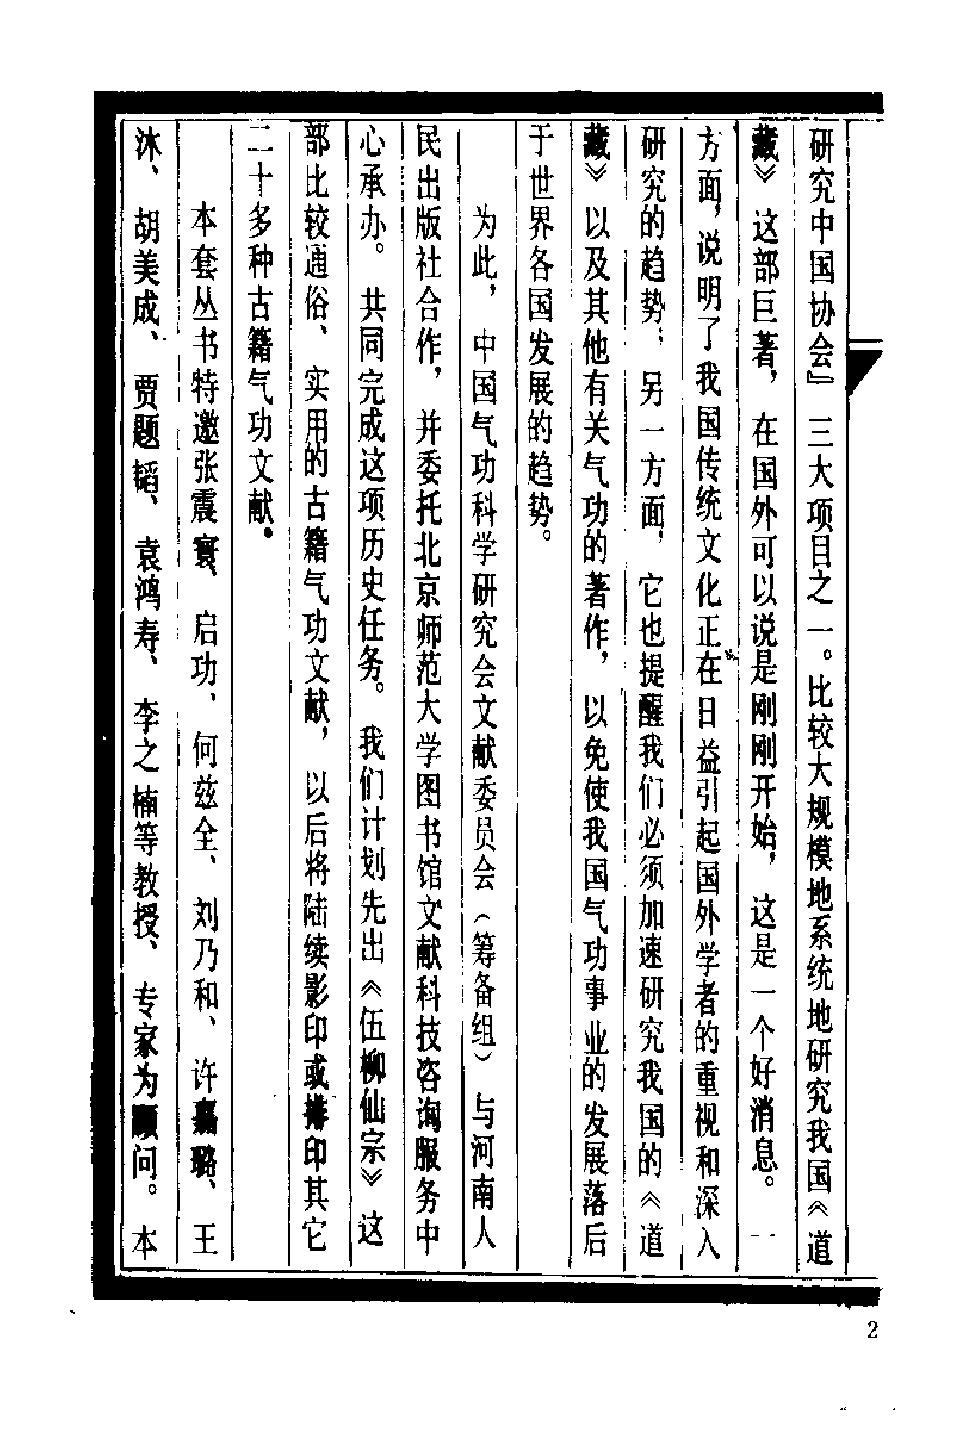 研究中国协会』三大项目之一。比较大规模地系统地研究我国《道
藏》这部巨著，在国外可以说是刚刚开始，这是一个好消息。一
方面，说明了我国传统文化正在日益引起国外学者的重视和深入
研究的趋势，另一方面，它也提醒我们必须加速研究我国的《道
藏》以及其他有关气功的著作，以免使我国气功事业的发展落后
于世界各国发展的趋势。
为此，中国气功科学研究会文献委员会（筹备组）与河南人
民出版社合作，并委托北京师范大学图书馆文献科技咨询服务中
心承办。共同完成这项历史任务。我们计划先出《伍柳仙宗》这
部比较通俗、实用的古籍气功文献，以后将陆续影印或排印其它
二十多种古籍气功文献。
本套丛书特邀张震寰、启功、何兹全、刘乃和、许嘉璐、王
沐、胡美成、贾题韬、袁鸿寿、李之楠等教授、专家为顾问。本
2